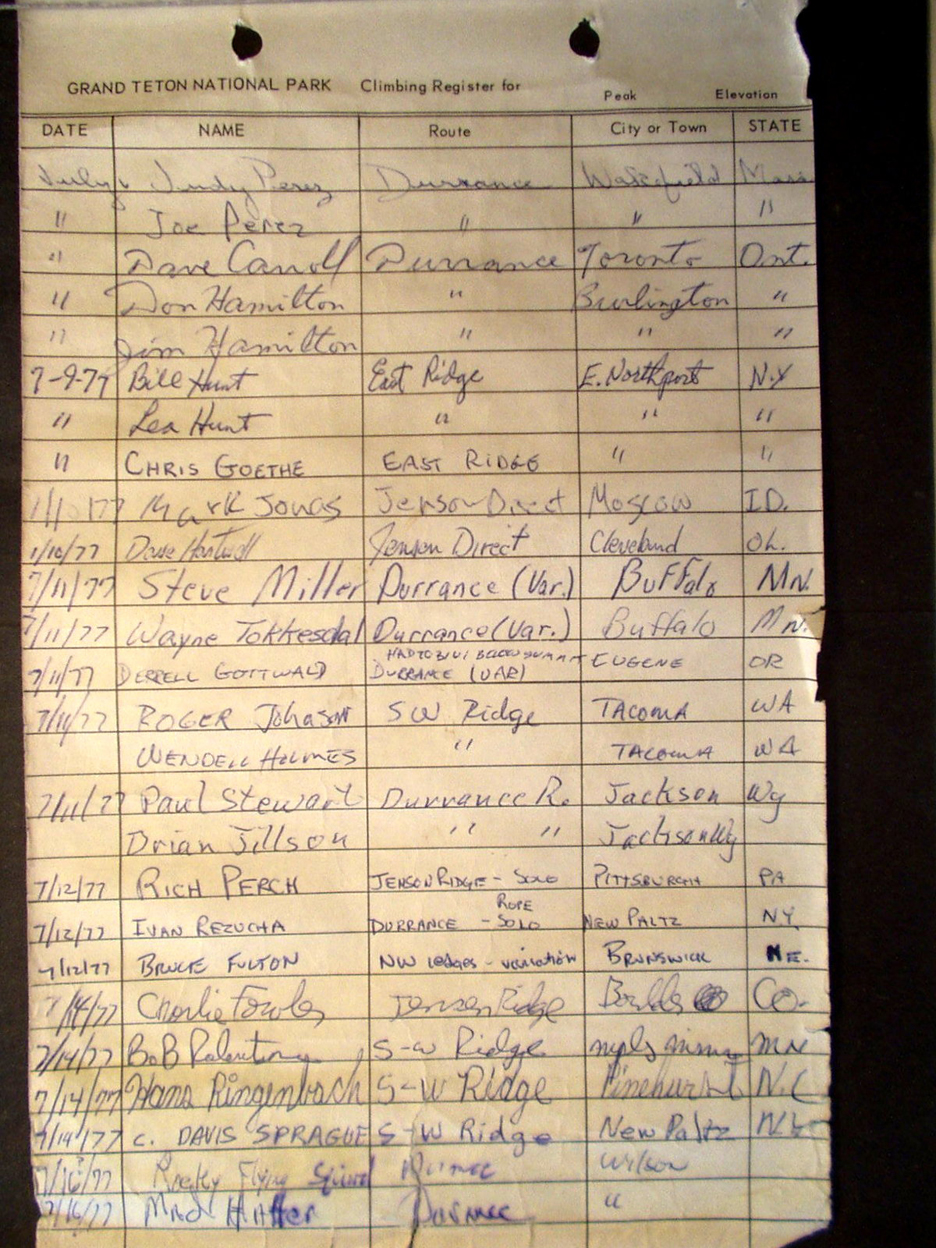 GRAND TETON NATIONAL PARK Climbing Register for Peak Elevation
DATE NAME Route City or Town STATE
July Judy Perez Durrance Wakefield Mass
" Joe Perez " " "
" Dave Carroll Durrance Toronto Ont.
" Don Hamilton " Burlington "
" Jim Hamilton " " "
7-9-77 Bill Hunt East Ridge E. Northport N.Y
" Lea Hunt " " "
" CHRIS GOETHE EAST RIDGE " "
Mark Jonas Jenson Direct Moscow ID.
1/10/77 Dave Hartwell Jensen Direct Cleveland Oh.
7/11/77 Steve Miller Durrance (Var.) Buffalo MN.
7/11/77 Wayne Tokkesdal Durrance (Var.) Buffalo Mn.
HAD TO BIVI BELOW SUMMIT
7/11/77 DERRELL GOTTWALD DURRANCE (VAR) EUGENE OR
7/11/77 ROGER Johnson SW Ridge TACOMA WA
WENDELL HOLMES " TACOMA WA
7/11/77 Paul Stewart Durrance R. Jackson Wy
Brian Jillson " " Jackson Wy
7/12/77 RICH PERCH JENSON RIDGE - SOLO PITTSBURGH PA
ROPE
7/12/77 IVAN REZUCHA DURRANCE - SOLO NEW PALTZ N.Y.
7/12/77 BRUCE FULTON NW ledges - variation BRUNSWICK ME.
7/14/77 Charlie Fowler Jensen Ridge Boulder Co.
7/14/77 BoB S-W Ridge mpls minn MN
7/14/77 Hans Ringenbach S-W Ridge Pinehurst N.C
7/14/77 C. DAVIS SPRAGUE S-W Ridge New Paltz N.Y.
7/16/77 Rocky Flying Squirrel Wilson
7/16/77 Mad Hatter Durance "